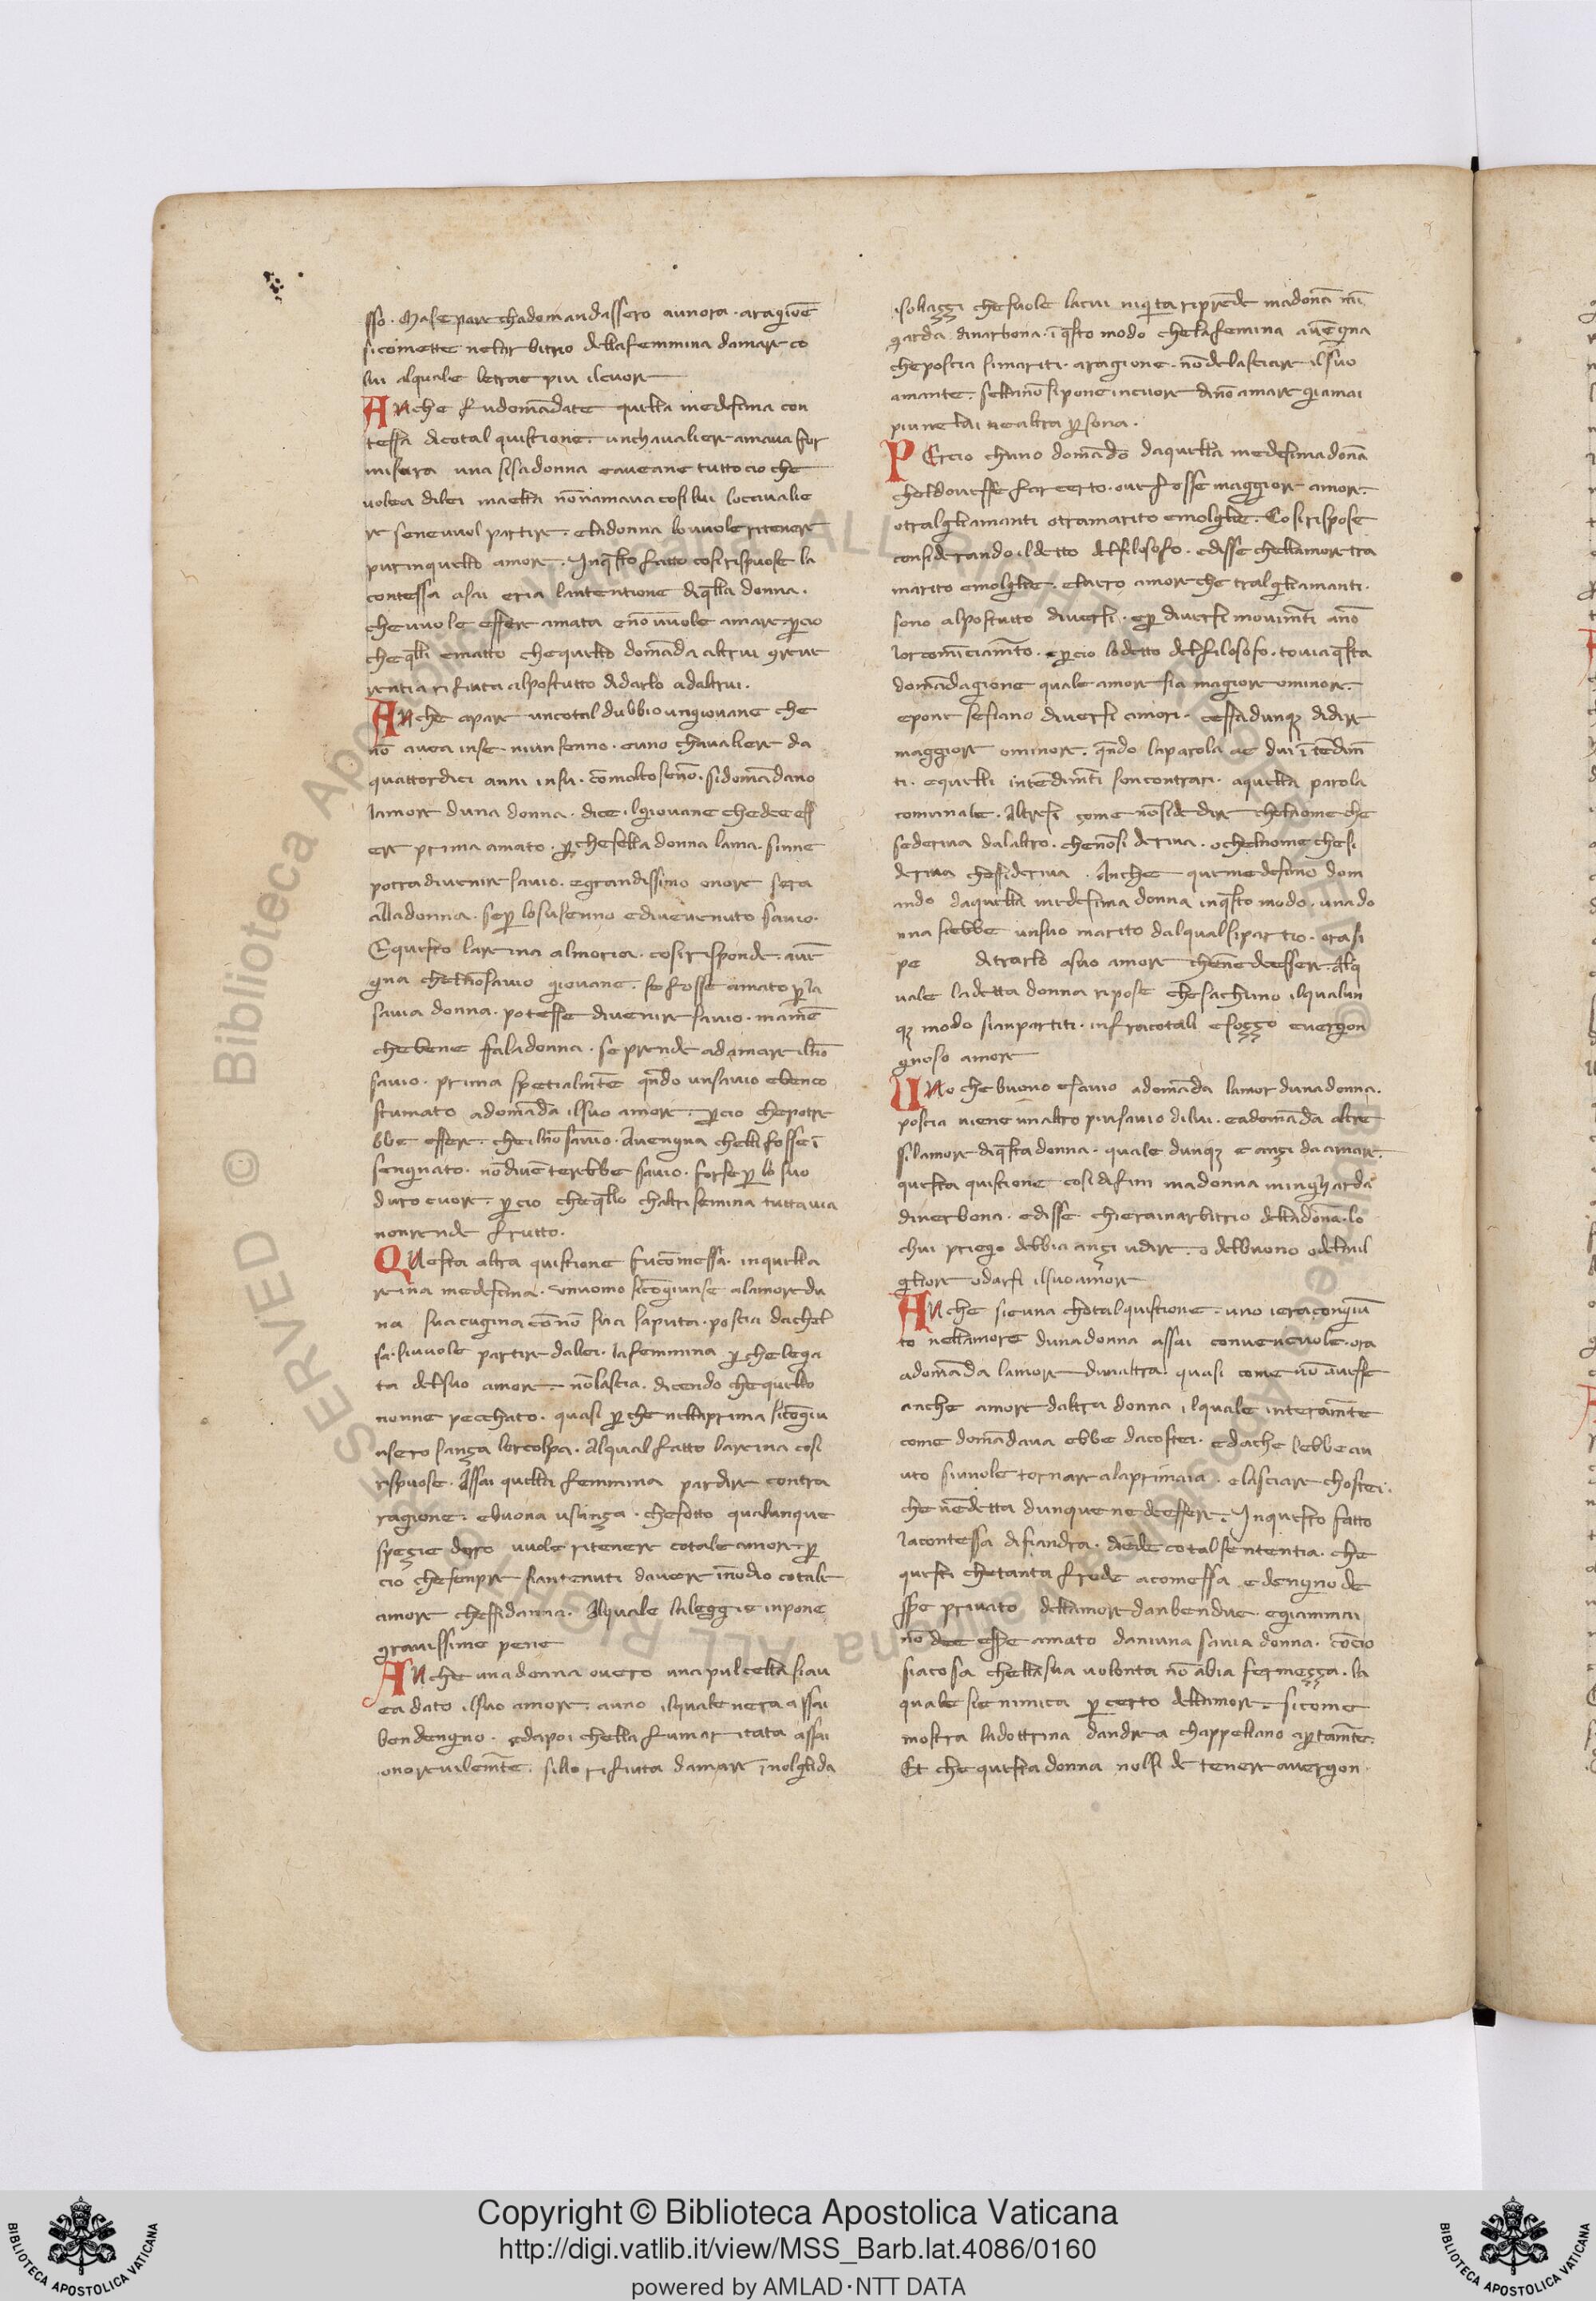 sso. Ma se pare chadomandassero aunora. aragione
sicomette nelarbitrio della femmina damare co
lui alquale letrae piu ilcuore
ANche fudomādate quella medesima con
tessa dicotal quistione. unchavaliere amava for
misura una sisadonna eaveane tutto cio che
volea dilei maella nōnamava cosi lui locavalie
re senevuol partire. eladonna lovuole ritenere
purinquello amore. Inq̄sto fatto cosi rispuose la
contessa asai eria lantentione diq̄lla donna.
chevuole essere amata enō vuole amare ꝑcio
cheq̄lli ematto chequello domāda altrui
rentia rifiuta alpostutto didarlo adaltrui.
ANche apare uncotal dubbio ungiovane che
nō avea inse. niun senno. euno chavaliere da
quattordici anni insu. cōmolto senō. sidomādano
lamore duna donna. dice ilgiovane chedee ess
ere prima amato. ꝑche sella donna lama. sinne
potra divenire savio. egrandissimo onore sera
alladonna. seꝑ losusenno edivenuto savio.
Equesto lareina almoria. cosi risponde. avē
gna chelnōsavio giovane. se fosse amato ꝑ la
savia donna. potesse divenire savio. mamē
chebene faladonna. se prende adamare ilnō
savio. prima spetialmēte qn̄do unsavio ebenco
stumato adomāda ilsuo amore. ꝑcio chepotre
bbe essere. che ilnō savio. Avengna chelli fosse ī
sengnato. nō diventerebbe savio. forse ꝑ lo suo
duro cuore. ꝑcio cheq̄llo chaltri semina tuttavia
nonrende frutto.
QUesta altra quistione fucōmessa. inquella
reina medesima. unuomo sicōgiunse alamore du
na sua cugina cōnō sua saputa. poscia dachel
sa. sivuole partire dalei. la femmina ꝑche lega
ta delsuo amore. nōlascia. dicendo chequello
nonne pecchato. quasi ꝑche nellaprima sicōgiu
nsero sança lorcolpa. Alqual fatto lareina cosi
rispuose. Assai quella femmina pardire contra
ragione. ebuona usança. chesotto qualunque
speçie dero vuole ritenere cotale amore. ꝑ
cio che sempre siantenuti davere inōdio cotale
amore chessidanna. Alquale laleggie inpone
gravissime pene
ANche unadonna overo una pulcella siav
ea dato ilsuo amore. auno ilquale nera assai
bendengno. edapoi chella fumaritata assai
onorevilemēte. sillo rifiuta damare inolglida
sollaççi chesuole lacui niq̄ita riprēde madonā mī
garda dinarbona. ī q̄sto modo chelafemina avēgna
cheposcia simariti. aragione. nō delasciare ilsuo
amante. sellanō sipone incuore dinō amare giamai
piunellui nealtra ꝑsona.
PErcio chuno domādo daquella medesima donā
cheldovesse farcerto. ove fosse maggiore amore.
otralgliamanti otramarito emolglie. Cosi rispose
considerando ildetto delfilosofo. edisse chellamore tra
marito emolglie. elvero amore che tralgliamanti.
sono alpostutto diversi. eꝑ diversi movimēti anō
lorcomīciamēto. eꝑcio lodetto delfilosofo. tovia q̄sta
domādagione quale amore sia magiore ominore.
epone sesiano diversi amori. cessadunqꝫ didire
maggiore ominore. qn̄do laparola ae dui ītendim̄
ti. equelli intēdimēti soncontrari. aquella parola
comunale. Altresi come nōsidedire chelnome che
sederiva dalaltro. chenōsi deriva. ochelnome chesi
deriva chessideriva. Anche quemedesimo dom
ando daquella medesima donna inq̄sto modo. unado
nna siebbe unsuo marito dalqual sipartio. orasi
pe ditrarlo asuo amore chēne deessere. Alq
uale ladetta donna ripose chesachuno ilqualun
qꝫ modo sianpartiti. infracotali esoçço evergon
gnoso amore
UNo chebuono esavio adomāda lamor dunadonna.
poscia viene unaltro piusavio dilui. eadomāda altre
silamore diq̄sta donna. quale dunqꝫ e ançi da amare.
questa quistione cosi difini madonna minghiarda
dinerbona. edisse chierainarbitrio delladonā. lo
chui priego debbia ançi udire. o delbuono odelmil
gliore odarsi ilsuoamore
ANche sie una chotal quistione. uno ieracongiū
to nellamore duna donna assai convenevole. ora
adomāda lamore dunaltra. quasi come nō avesse
anche amore daltra donna ilquale interamēte
come domādava ebbe dacostei. edache lebbe av
uto sivuole tornare alaprimaia. elasciare chostei.
che nēdetta dunque nedeessere. Inquesto fatto
lacontessa di fiandra. diēde cotal sententia. che
questi chetanta frode acomessa edengno de
sse privato dellamore danbendue. egiammai
nō dee esse amato daniuna savia donna. cōcio
siacosa chellasua volonta nō abia fermeçça. la
quale sie nimica ꝑ certo dellamore. sicome
mostra ladottrina dandrea chappellano aꝑtamēte.
Et che questa donna nolsi de tenere avergon.
Copyright © Biblioteca Apostolica Vaticana
http://digi.vatlib.it/view/MSS_Barb.lat.4086/0160
powered by AMLAD·NTT DATA
BIBLIOTECA APOSTOLICA VATICANA
BIBLIOTECA APOSTOLICA VATICANA